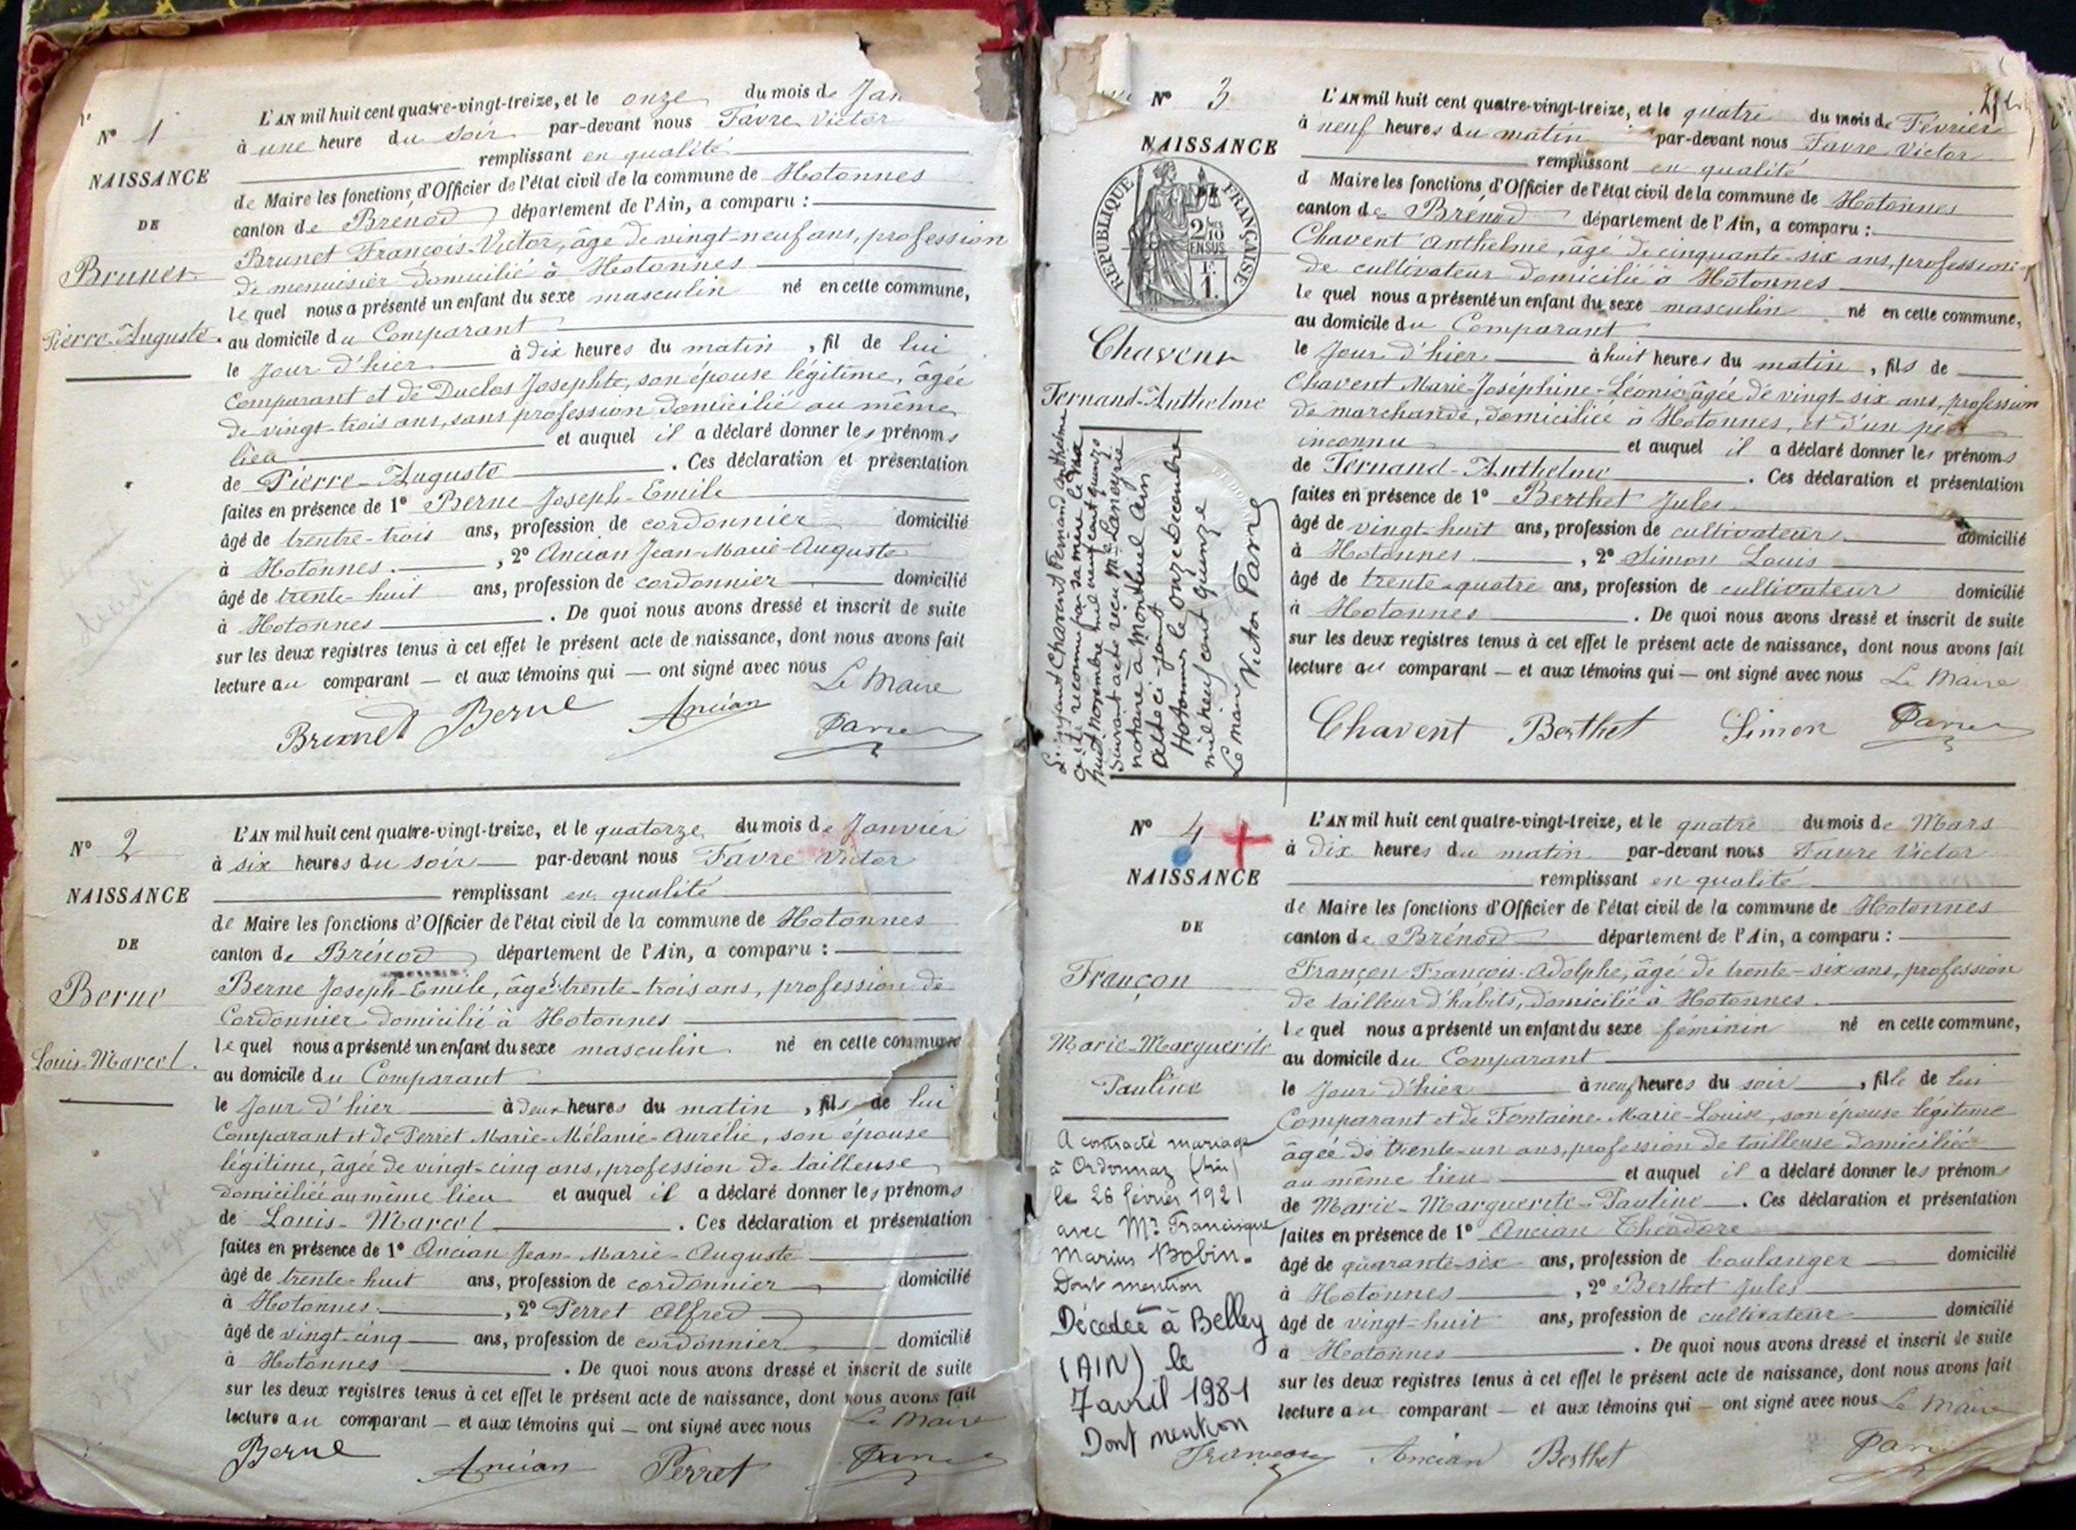 N° 1
NAISSANCE
DE
Brunet
Pierre-Auguste.
L'AN mil huit cent quatre-vingt-treize, et le onze du mois de Jan
à une heure du soir par-devant nous Favre Victor
remplissant en qualité
de Maire les fonctions d'Officier de l'état civil de la commune de Hotonnes
canton de Brénod département de l'Ain, a comparu :
Brunet François-Victor, âgé de vingt-neuf ans, profession
de menuisier domicilié à Hotonnes
lequel nous a présenté un enfant du sexe masculin né en cette commune,
au domicile du Comparant
le jour d'hier à dix heures du matin, fil de lui
comparant et de Duclos Josephte, son épouse légitime, âgée
de vingt-trois ans, sans profession domicilié au même
lieu et auquel il a déclaré donner les prénoms
de Pierre-Auguste. Ces déclaration et présentation
faites en présence de 1° Berne Joseph-Emile
âgé de trentre-trois ans, profession de cordonnier domicilié
à Hotonnes., 2° Ancian Jean-Marie-Auguste
âgé de trente-huit ans, profession de cordonnier domicilié
à Hotonnes. De quoi nous avons dressé et inscrit de suite
sur les deux registres tenus à cet effet le présent acte de naissance, dont nous avons fait
lecture au comparant — et aux témoins qui — ont signé avec nous Le Maire
Brunet Berne Ancian Favre
N° 2
NAISSANCE
DE
Berne
Louis-Marcel.
L'AN mil huit cent quatre-vingt-treize, et le quatorze du mois de Janvier
à six heures du soir par-devant nous Favre Victor
remplissant en qualité
de Maire les fonctions d'Officier de l'état civil de la commune de Hotonnes
canton de Brénod département de l'Ain, a comparu :
Berne Joseph-Emile, âgé trente-trois ans, profession de
Cordonnier domicilié à Hotonnes
lequel nous a présenté un enfant du sexe masculin né en cette commune
au domicile du Comparant
le jour d'hier à deux heures du matin, fils de lui
Comparant et de Perret Marie-Mélanie-Aurélie, son épouse
légitime, âgée de vingt-cinq ans, profession de tailleuse
domiciliée au même lieu et auquel il a déclaré donner les prénoms
de Louis-Marcel. Ces déclaration et présentation
faites en présence de 1° Ancian Jean-Marie-Auguste
âgé de trente-huit ans, profession de cordonnier domicilié
à Hotonnes., 2° Perret Alfred
âgé de vingt-cinq ans, profession de cordonnier domicilié
à Hotonnes. De quoi nous avons dressé et inscrit de suite
sur les deux registres tenus à cet effet le présent acte de naissance, dont nous avons fait
lecture au comparant — et aux témoins qui — ont signé avec nous Le Maire
Berne Ancian Perret Favre
N° 3
NAISSANCE
RÉPUBLIQUE FRANÇAISE
2/10 EN SUS
1F.
Chavent
Fernand-Anthelme
L'AN mil huit cent quatre-vingt-treize, et le quatre du mois de Février
à neuf heures du matin par-devant nous Favre Victor
remplissant en qualité
d Maire les fonctions d'Officier de l'état civil de la commune de Hotonnes
canton de Brénod département de l'Ain, a comparu :
Chavent Anthelme, âgé de cinquante-six ans, profession
de cultivateur domicilié à Hotonnes
lequel nous a présenté un enfant du sexe masculin né en cette commune,
au domicile du Comparant
le jour d'hier à huit heures du matin, fils de
Chavent Marie-Joséphine-Léonie âgée de vingt-six ans, profession
de marchande, domiciliée à Hotonnes, et d'un père
inconnu et auquel il a déclaré donner les prénoms
de Fernand-Anthelme. Ces déclaration et présentation
faites en présence de 1° Berthet Jules
âgé de vingt-huit ans, profession de cultivateur domicilié
à Hotonnes, 2° Simon Louis
âgé de trente-quatre ans, profession de cultivateur domicilié
à Hotonnes. De quoi nous avons dressé et inscrit de suite
sur les deux registres tenus à cet effet le présent acte de naissance, dont nous avons fait
lecture au comparant — et aux témoins qui — ont signé avec nous Le Maire
Chavent Berthet Simon Favre
Chavent Fernand Anthelme
a été reconnu par sa mère le
huit novembre mil neuf cent quinze
suivant acte reçu Me Laneyrie
notaire à Montluel Ain
Hotonnes le onze décembre
mil neuf cent quinze
Le maire Victor Favre
N° 4
NAISSANCE
DE
Françon
Marie-Marguerite
Pauline
A contracté mariage
à Ordonnaz (Ain)
le 26 février 1921
avec Mr Francisque
Marius Bobin.
Dont mention
Décédée à Belley
(AIN) le
7 avril 1981
Dont mention
L'AN mil huit cent quatre-vingt-treize, et le quatre du mois de Mars
à dix heures du matin par-devant nous Favre Victor
remplissant en qualité
de Maire les fonctions d'Officier de l'état civil de la commune de Hotonnes
canton de Brénod département de l'Ain, a comparu :
Françon François-Adolphe, âgé de trente-six ans, profession
de tailleur d'habits, domicilié à Hotonnes.
lequel nous a présenté un enfant du sexe féminin né en cette commune,
au domicile du Comparant
le jour d'hier à neuf heures du soir, fille de lui
Comparant et de Fontaine Marie-Louise, son épouse légitime
âgée de trente-un ans, profession de tailleuse domiciliée
au même lieu et auquel il a déclaré donner les prénoms
de Marie-Marguerite-Pauline. Ces déclaration et présentation
faites en présence de 1° Ancian Théodore
âgé de quarante-six ans, profession de boulanger domicilié
à Hotonnes, 2° Berthet Jules
âgé de vingt-huit ans, profession de cultivateur domicilié
à Hotonnes. De quoi nous avons dressé et inscrit de suite
sur les deux registres tenus à cet effet le présent acte de naissance, dont nous avons fait
lecture au comparant — et aux témoins qui — ont signé avec nous Le Maire
Françon Ancian Berthet Favre